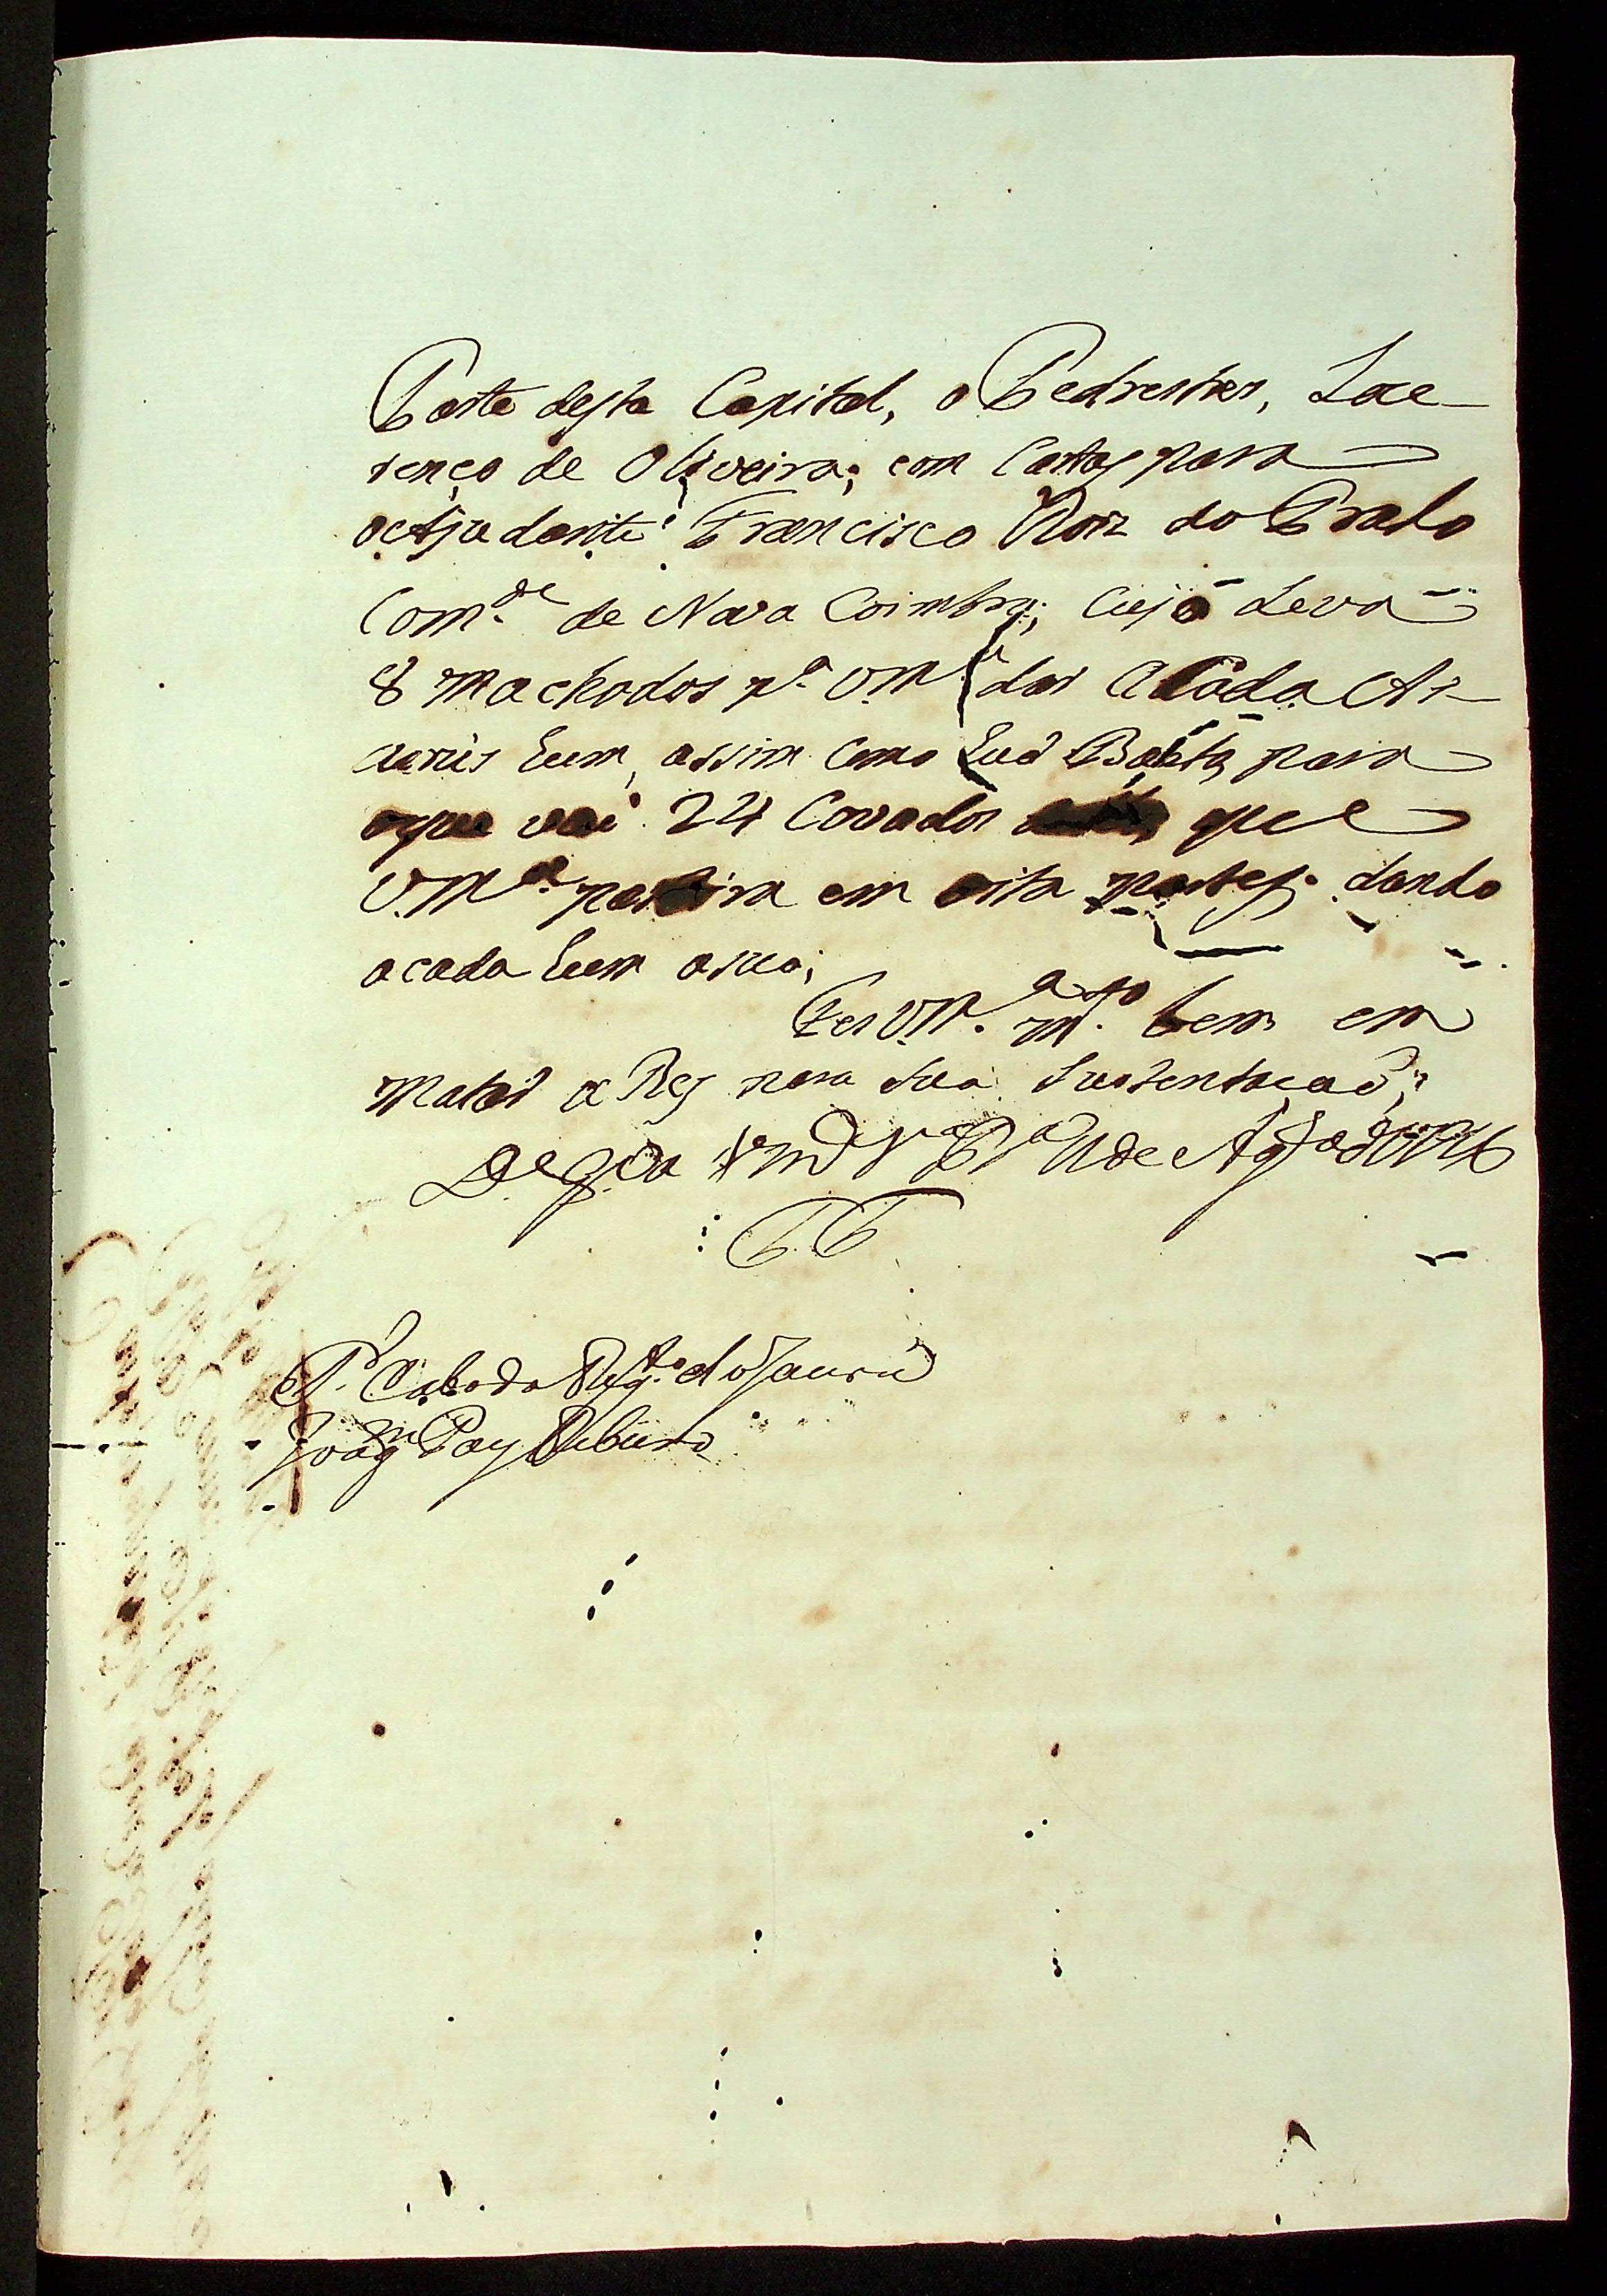 Parte desta Capital, o Pedrestes, Lou-
renço de Oliveira; com Cartas para
o Ajudante Francisco Roiz do Prado
Com.de de Nova Coimbra; Cujo Leva
8 Machados p.a V.M.ce dar a Cada A-
hum, assim como Sua Baêta, para
oque vai 24 Covados que
V.M.ce partira em oito partes, dando
a cada hum a sua;
Fes V.M.ce m.to bem em
Matar a Res para sua Sustentação;
D.s g.e a V.M.ce V.a B.a de Ag.to de 1796
Joaq.m Ribeiro